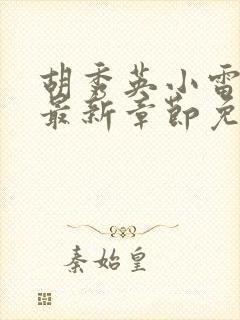 胡秀英小雷
最新章节免
秦始皇